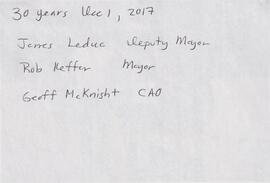 30 years Dec 1, 2017
James Leduc Deputy Mayor
Rob Keffer Mayor
Geoff McKnight CAO